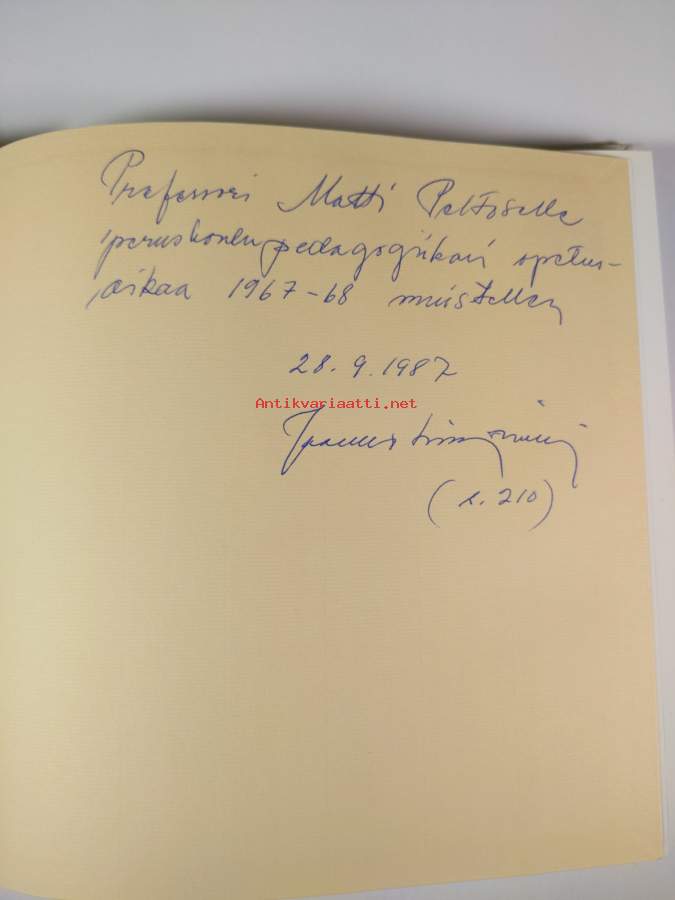 Professori Matti Peltoselle
peruskoulupedagogiikan opetus-
aikaa 1967-68 muistellen
28.9.1987
Antikvariaatti.net
(s. 210)